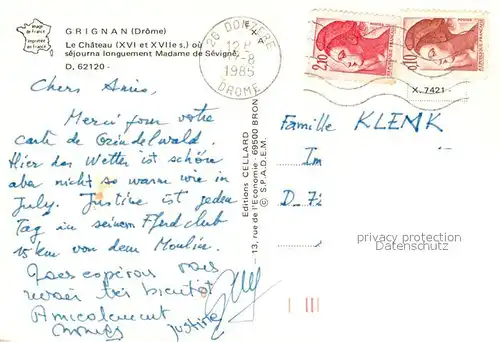 image de France
imprimée en France
GRIGNAN (Drôme)
Le Château (XVI et XVIIe s,) où
séjourna longuement Madame de Sévigné,
D. 62120 -
26 DONZERE
12 H
-8
1985
DROME
2,10
0,10
X. 7421
Chers Amis,
Merci pour votre
carte de Grindelwald.
Hier das Wetter ist schön
aber nicht so warm wie in
July. Justine ist jeden
Tag in seinem Pferdclub
15 km von dem Moulin.
Nous espérons vous
revoir très bientôt
Amicalement
Justine
Editions CELLARD
-13, rue de l'Economie - 69500 BRON
© S.P.A.D.E.M.
Famille KLEMK
Im
D_ 7
privacy protection
Datenschutz